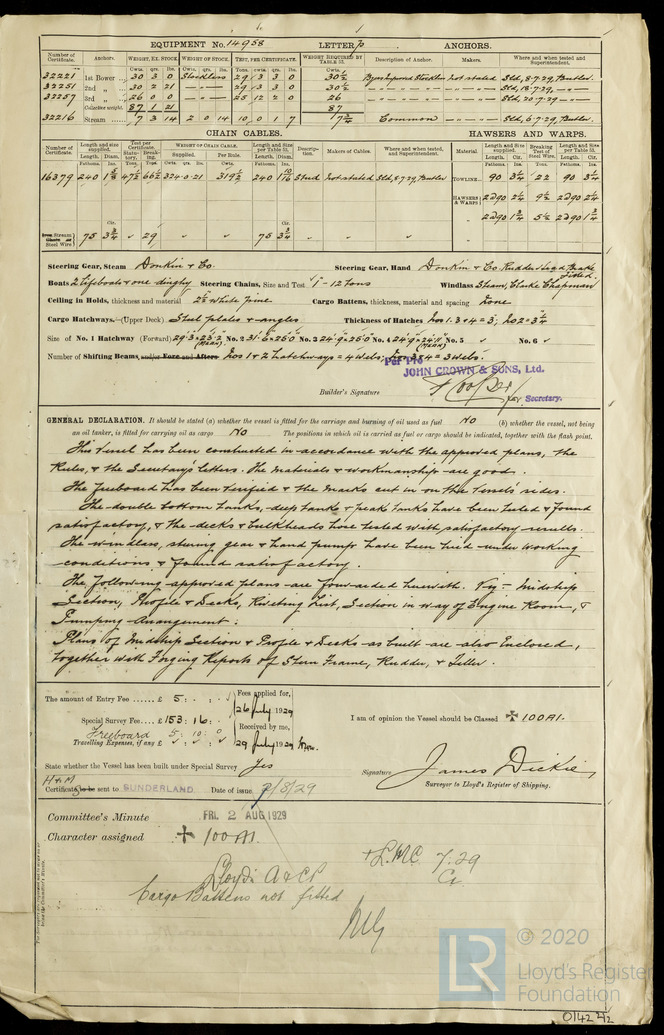 EQUIPMENT No. 14958 LETTER ANCHORS.
Number of Certificate. Anchors. WEIGHT, EX. STOCK. WEIGHT OF STOCK. TEST, PER CERTIFICATE. WEIGHT REQUIRED BY TABLE 53. Description of Anchor. Makers. Where and when tested and Superintendent.
Cwts. qrs. lbs. Cwts. qrs. lbs. Tons. cwts. qrs. lbs. Cwts.
32221 1st Bower 30 3 0 Stockless 29 3 3 0 30½ Byers Improved Stockless Not stated Sld, 8.7.29, Butler.
32251 2nd „ 30 2 21 29 3 3 0 30½ Sld, 18.7.29
32257 3rd „ 26 0 0 25 12 2 0 26 Sld, 20.7.29
Collective weight 87 1 21 87
32216 Stream 7 3 14 2 0 14 10 0 1 7 7¾ Common Sld, 6.7.29, Butler.
CHAIN CABLES. HAWSERS AND WARPS.
Number of Certificate. Length and size supplied. Test per Certificate WEIGHT OF CHAIN CABLE. Length and size per Table 53. Description. Makers of Cables. Where and when tested, and Superintendent. Material. Length and Size supplied. Breaking Test of Steel Wire. Length and size per Table 53.
Length. Diam. Statutory. Breaking. Supplied. Per Rule. Length. Diam. Length. Cir. Length. Cir.
16379 240 1 47½ 66½ 324.0.21 319½ 240 1 10/16 Stud Not stated Sld, 8.7.29, Butler TOWLINE 90 3¼ 22 90 3¼
HAWSERS & WARPS 2 @ 90 2¼ 9½ 2 @ 90 2¼
2 @ 90 1¾ 5½ 2 @ 90 1¾
Steel Wire 75 3¾ „ 29 75 3¾
Steering Gear, Steam Donkin & Co. Steering Gear, Hand Donkin & Co. Rudder Head Brake fitted.
Boats 2 Lifeboats & one dinghy Steering Chains, Size and Test 1" - 12 tons Windlass Steam, Clarke Chapman
Ceiling in Holds, thickness and material 2½ White pine Cargo Battens, thickness, material and spacing None
Cargo Hatchways.—(Upper Deck) Steel plates & angles Thickness of Hatches Nos 1.3 & 4 = 3; No 2 = 3¼
Size of No. 1 Hatchway (Forward) 29'.3 × 23'.2 (MEAN) No. 2 31'.6 × 25'.0 No. 3 24'.9 × 25'.0 No. 4 24'.9 × 24'.11 (MEAN) No. 5 No. 6
Number of Shifting Beams and/or Fore and Afters Nos 1 & 2 hatchways = 4 webs; Nos 3 & 4 = 3 webs.
Per Pro
JOHN CROWN & SONS, Ltd.
Builder's Signature F Cooper
Secretary.
GENERAL DECLARATION. It should be stated (a) whether the vessel is fitted for the carriage and burning of oil used as fuel NO (b) whether the vessel, not being
an oil tanker, is fitted for carrying oil as cargo NO The positions in which oil is carried as fuel or cargo should be indicated, together with the flash point.
This Vessel has been constructed in accordance with the approved plans, the
Rules, & the Secretary's letters. The materials & workmanship are good.
The freeboard has been verified & the marks cut in on the Vessel's sides.
The double bottom tanks, deep tanks & peak tanks have been tested & found
satisfactory, & the decks & bulkheads hose tested with satisfactory results.
The windlass, steering gear & hand pump have been tried under working
conditions & found satisfactory.
The following approved plans are forwarded herewith. Viz - Midship
Section, Profile & Decks, Riveting List, Section in way of Engine Room, &
Pumping Arrangement.
Plans of Midship Section & Profile & Decks as built are also Enclosed,
together with Forging Reports of Stern Frame, Rudder, & Tiller.
The amount of Entry Fee £ 5 : . : . Fees applied for,
26 July 1929
Special Survey Fee £ 153 : 16 : . Received by me,
Freeboard 5 : 10 : 0
Travelling Expenses, if any £ 29 July 1929
I am of opinion the Vessel should be Classed ✠ 100A1.
State whether the Vessel has been built under Special Survey Yes
Signature James Dickie
Surveyor to Lloyd's Register of Shipping.
H & M
Certificate to be sent to SUNDERLAND Date of issue 9/8/29
Committee's Minute FRI. 2 AUG 1929
Character assigned ✠ 100A1
+ LMC 7.29
Lloyd's A & CP
Cargo Battens not fitted
© 2020
LR
Lloyd's Register
Foundation